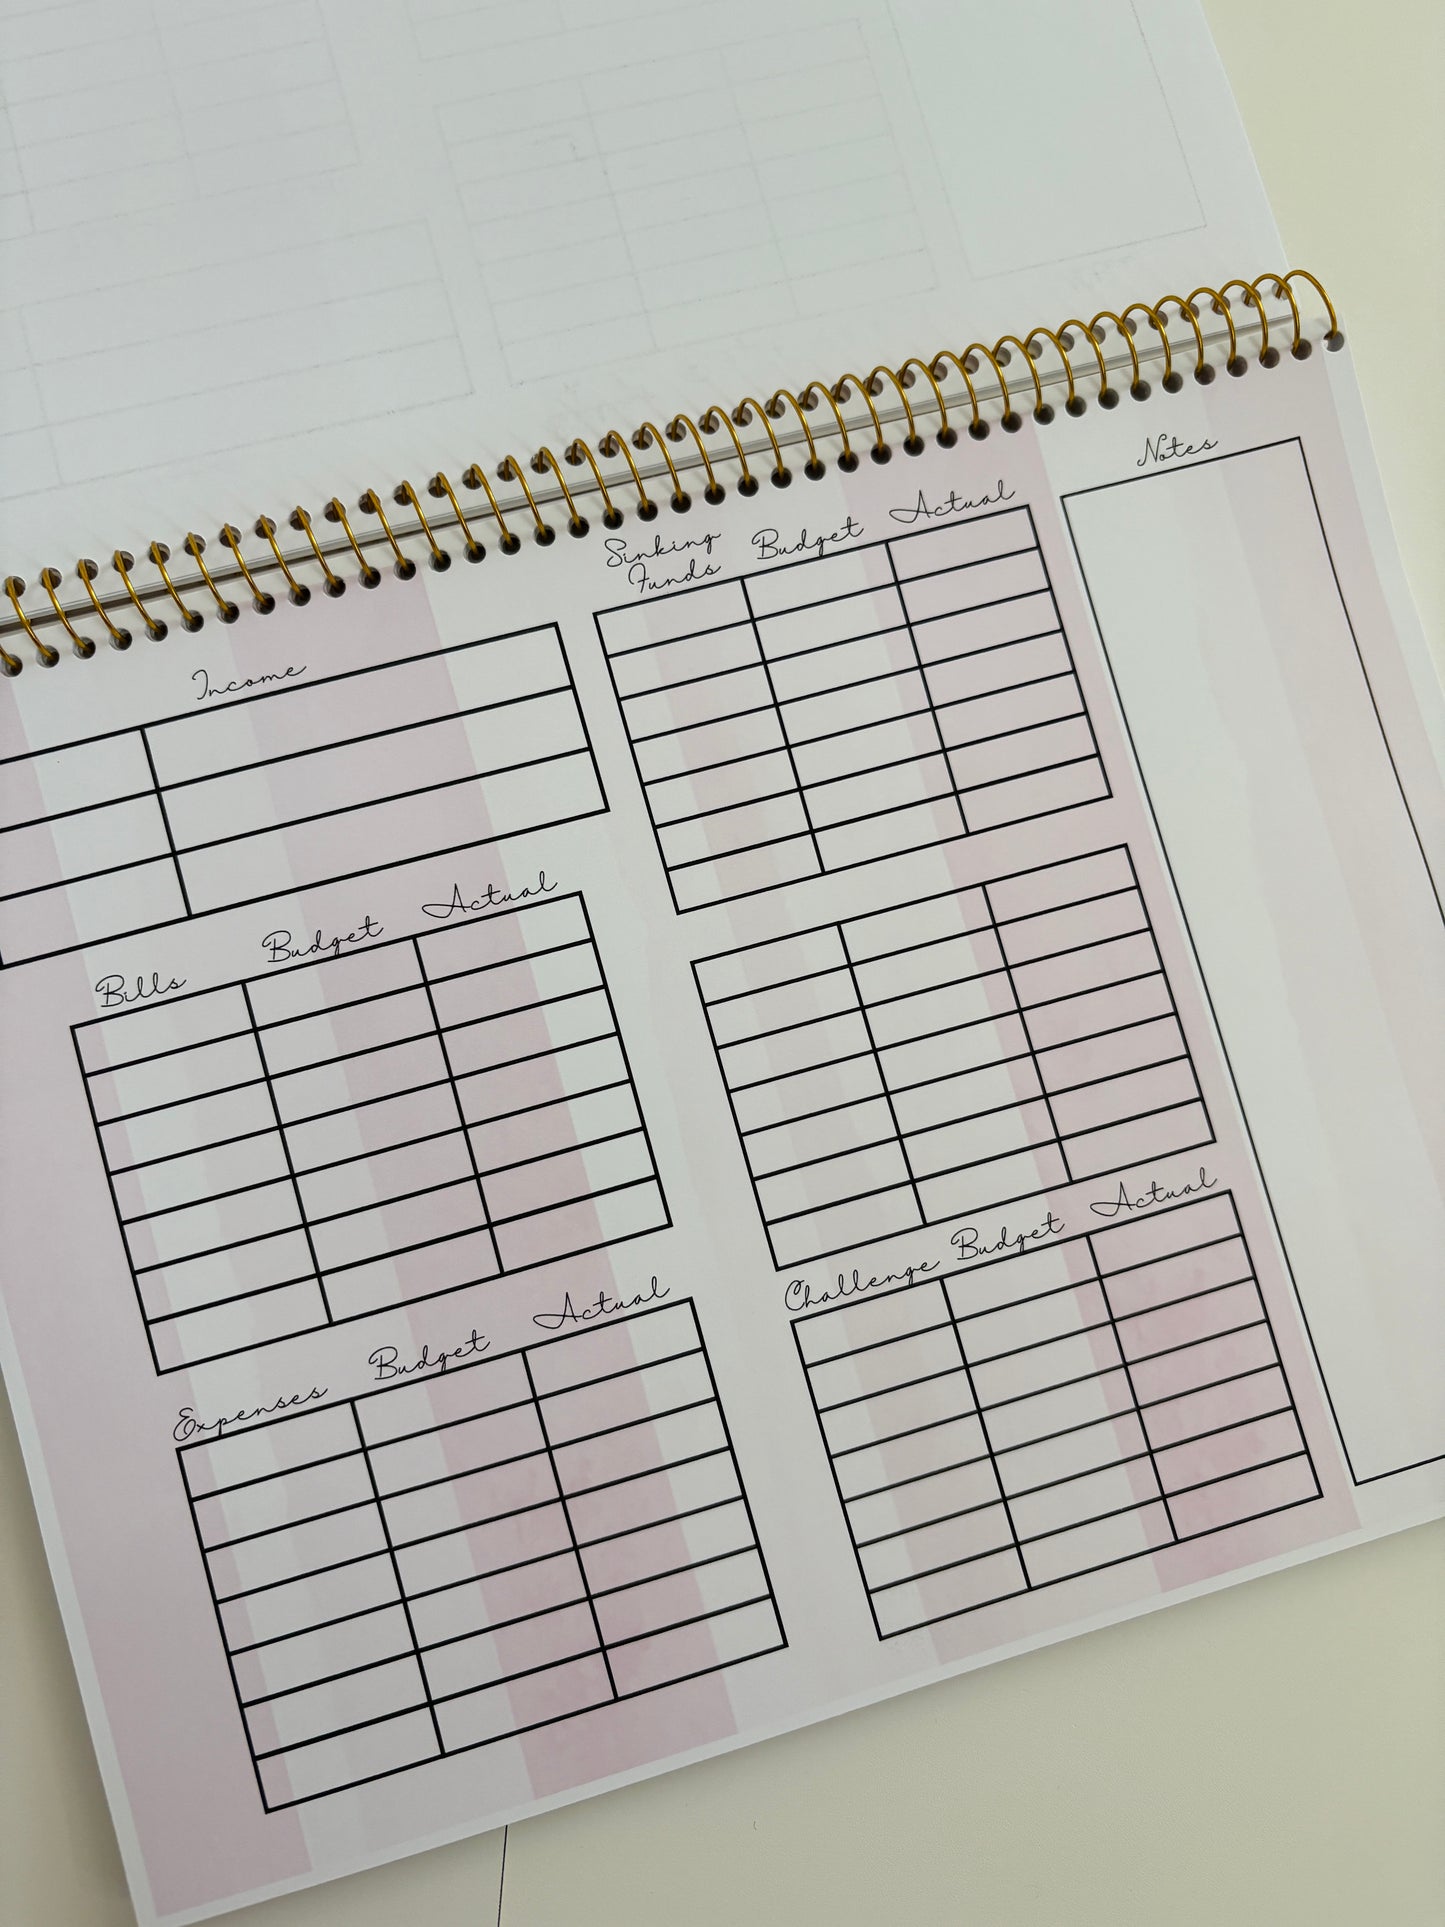 Income
Bills Budget Actual
Expenses Budget Actual
Sinking Budget Actual
Funds
Challenge Budget Actual
Notes